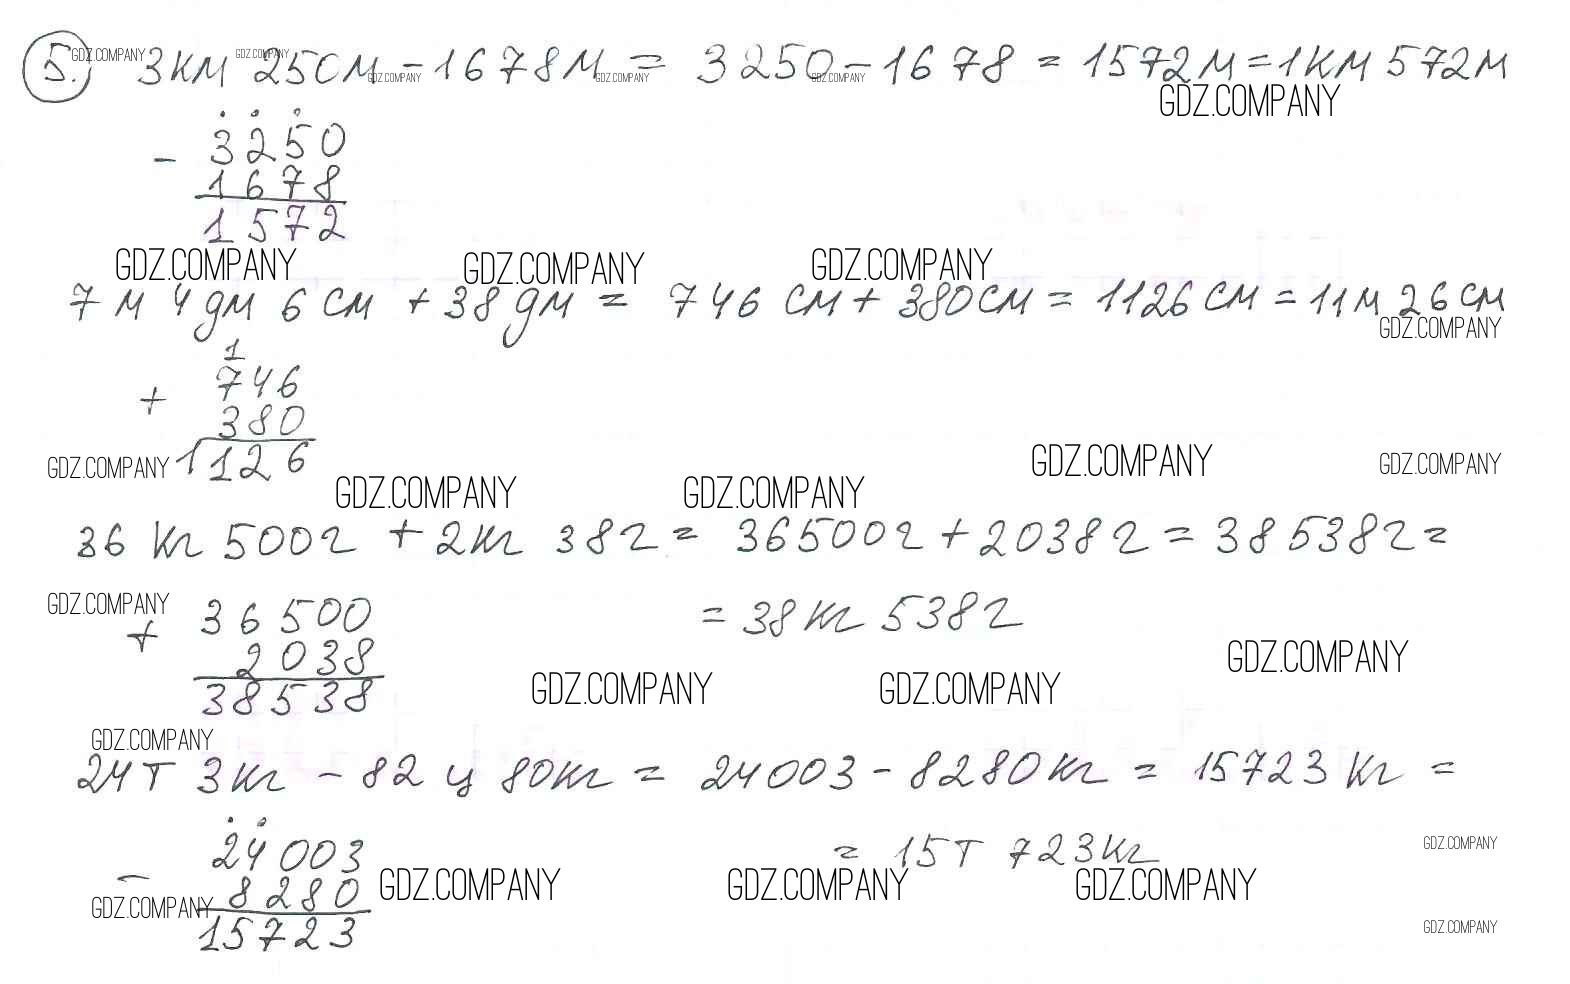 5.) 3 км 250 м - 1678 м = 3250 - 1678 = 1572 м = 1 км 572 м
- 3250
1678
1572
7 м 4 дм 6 см + 38 дм = 746 см + 380 см = 1126 см = 11 м 26 см
1
+ 746
380
1126
36 кг 500 г + 2 кг 38 г = 36500 г + 2038 г = 38538 г =
= 38 кг 538 г
+ 36500
2038
38538
24 т 3 кг - 82 ц 80 кг = 24003 - 8280 кг = 15723 кг =
= 15 т 723 кг
- 24003
8280
15723
GDZ.COMPANY GDZ.COMPANY GDZ.COMPANY GDZ.COMPANY GDZ.COMPANY
GDZ.COMPANY
GDZ.COMPANY GDZ.COMPANY GDZ.COMPANY
GDZ.COMPANY
GDZ.COMPANY GDZ.COMPANY GDZ.COMPANY
GDZ.COMPANY GDZ.COMPANY
GDZ.COMPANY
GDZ.COMPANY
GDZ.COMPANY GDZ.COMPANY
GDZ.COMPANY
GDZ.COMPANY
GDZ.COMPANY GDZ.COMPANY GDZ.COMPANY
GDZ.COMPANY
GDZ.COMPANY